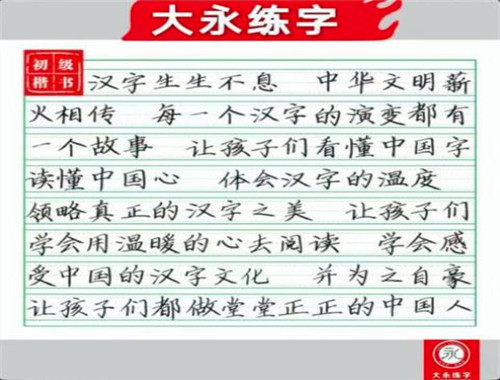 大永练字
初级
楷书
汉字生生不息 中华文明薪
火相传 每一个汉字的演变都有
一个故事 让孩子们看懂中国字
读懂中国心 体会汉字的温度
领略真正的汉字之美 让孩子们
学会用温暖的心去阅读 学会感
受中国的汉字文化 并为之自豪
让孩子们都做堂堂正正的中国人
永
大永练字